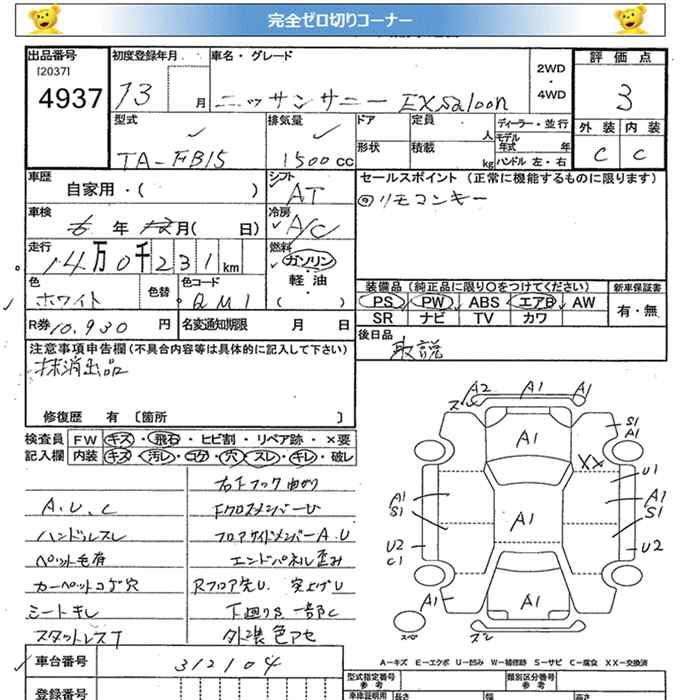 完全ゼロ切りコーナー
出品番号 初度登録年月 車名・グレード 2WD ・4WD 評価点
[2037]
4937 13 月 ニッサンサニー EXsaloon 3
型式 排気量 ドア 定員 人 ディーラー・並行 外装 内装
モデル年式 年
TA-FB15 1500cc 形状 積載 kg ハンドル 左・右 C C
車歴 シフト セールスポイント(正常に機能するものに限ります)
自家用・( ) AT リモコンキー
車検 冷房
年 月( 日) A/C
走行 燃料
14万0千231km ガソリン・軽・油
色 色替 色コード ( ) 装備品(純正品に限り○をつけてください) 新車保証書
ホワイト QM1 PS PW ABS エアB AW 有・無
SR ナビ TV カワ
R券 10,930 円 名変通知期限 月 日 後日品
取説
注意事項申告欄(不具合内容等は具体的に記入して下さい)
抹消出品
修復歴 有〔箇所 〕
検査員記入欄 FW キズ・飛石・ヒビ割・リペア跡・×要
内装 キズ・汚レ・コゲ・穴・スレ・キレ・破レ
右Fフック曲がり
A.U.C FクロスメンバーU
ハンドルスレ フロアサイドメンバーA.U
ペット毛有 エンドパネル歪み
カーペットコゲ穴 Rフロア先U. 突上げU
シートキレ 下廻りS 一部C
スタットレスT 外装色アセ
A2 A1 A1
A1 S1 A1
XX U1
A1 S1 A1 A1 S1
U2 C1 U2
A1 A1
車台番号 312104
A-キズ E-エクボ U-凹み W-補修跡 S-サビ C-腐食 XX-交換済
登録番号 型式指定番号 参考 類別区分番号 参考
車庫証明用 長さ 幅 高さ